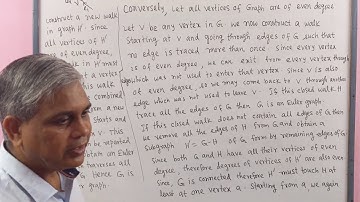 construct a new walk
in graph H'. since
all vertices of H'
of even degree,
in H' must
this walk
combined
from a new
starts and
V. this
be repeated
obtain an Euler
traverses all
Hence G is
graph
Conversely, Let all vertices of Graph are of even degree
Let V be any vertex in G. we now construct a walk
Starting at V and going through edges of G such that
no edge is traced more than once. Since every vertex
is of even degree, we can exit from every vertex through
edge which was not used to enter that vertex. since V is also
of even degree, so we may come back to V through another
edge which was not used to leave V. If this closed walk H
track all the edges of G then G is an Euler graph
If this closed walk does not contain all edges of G then
we remove all the edges of H from G and obtain a
subgraph H' = G-H of G form by remaining edges of G
since both G and H have all their vertices of even
degree, therefore degrees of vertices of H' are also even
since, G is connected therefore H' must touch H at
least at one vertex a. Starting from a, we again